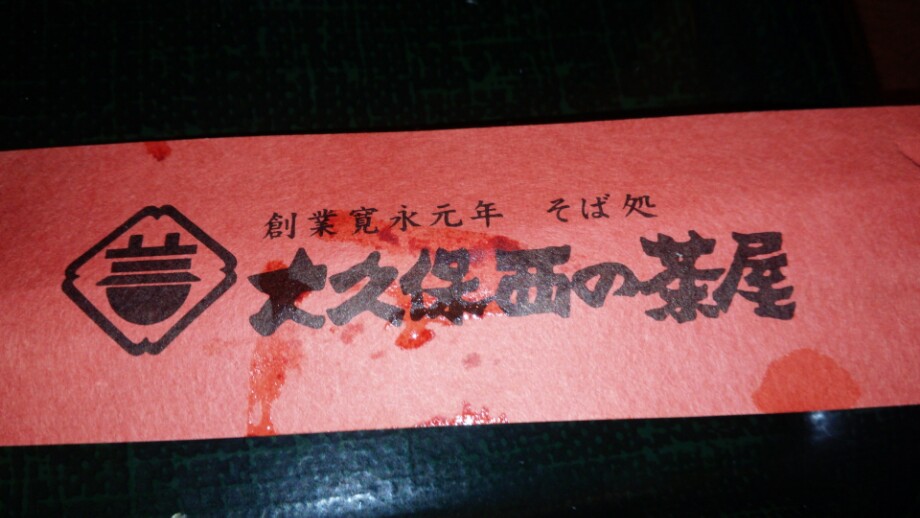 創業寛永元年 そば処
大久保西の茶屋